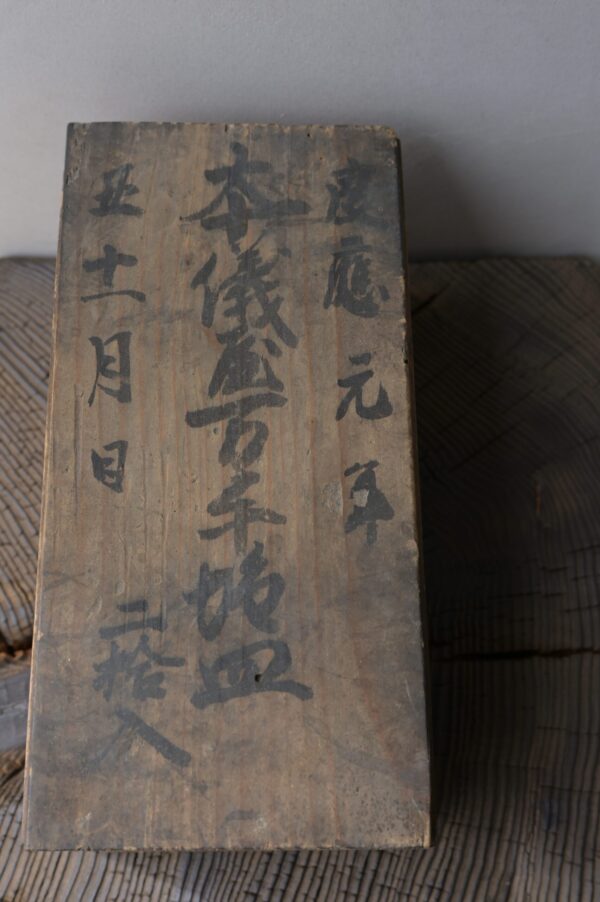 慶應元年
本儀万手塩皿
丑十一月日
二拾入